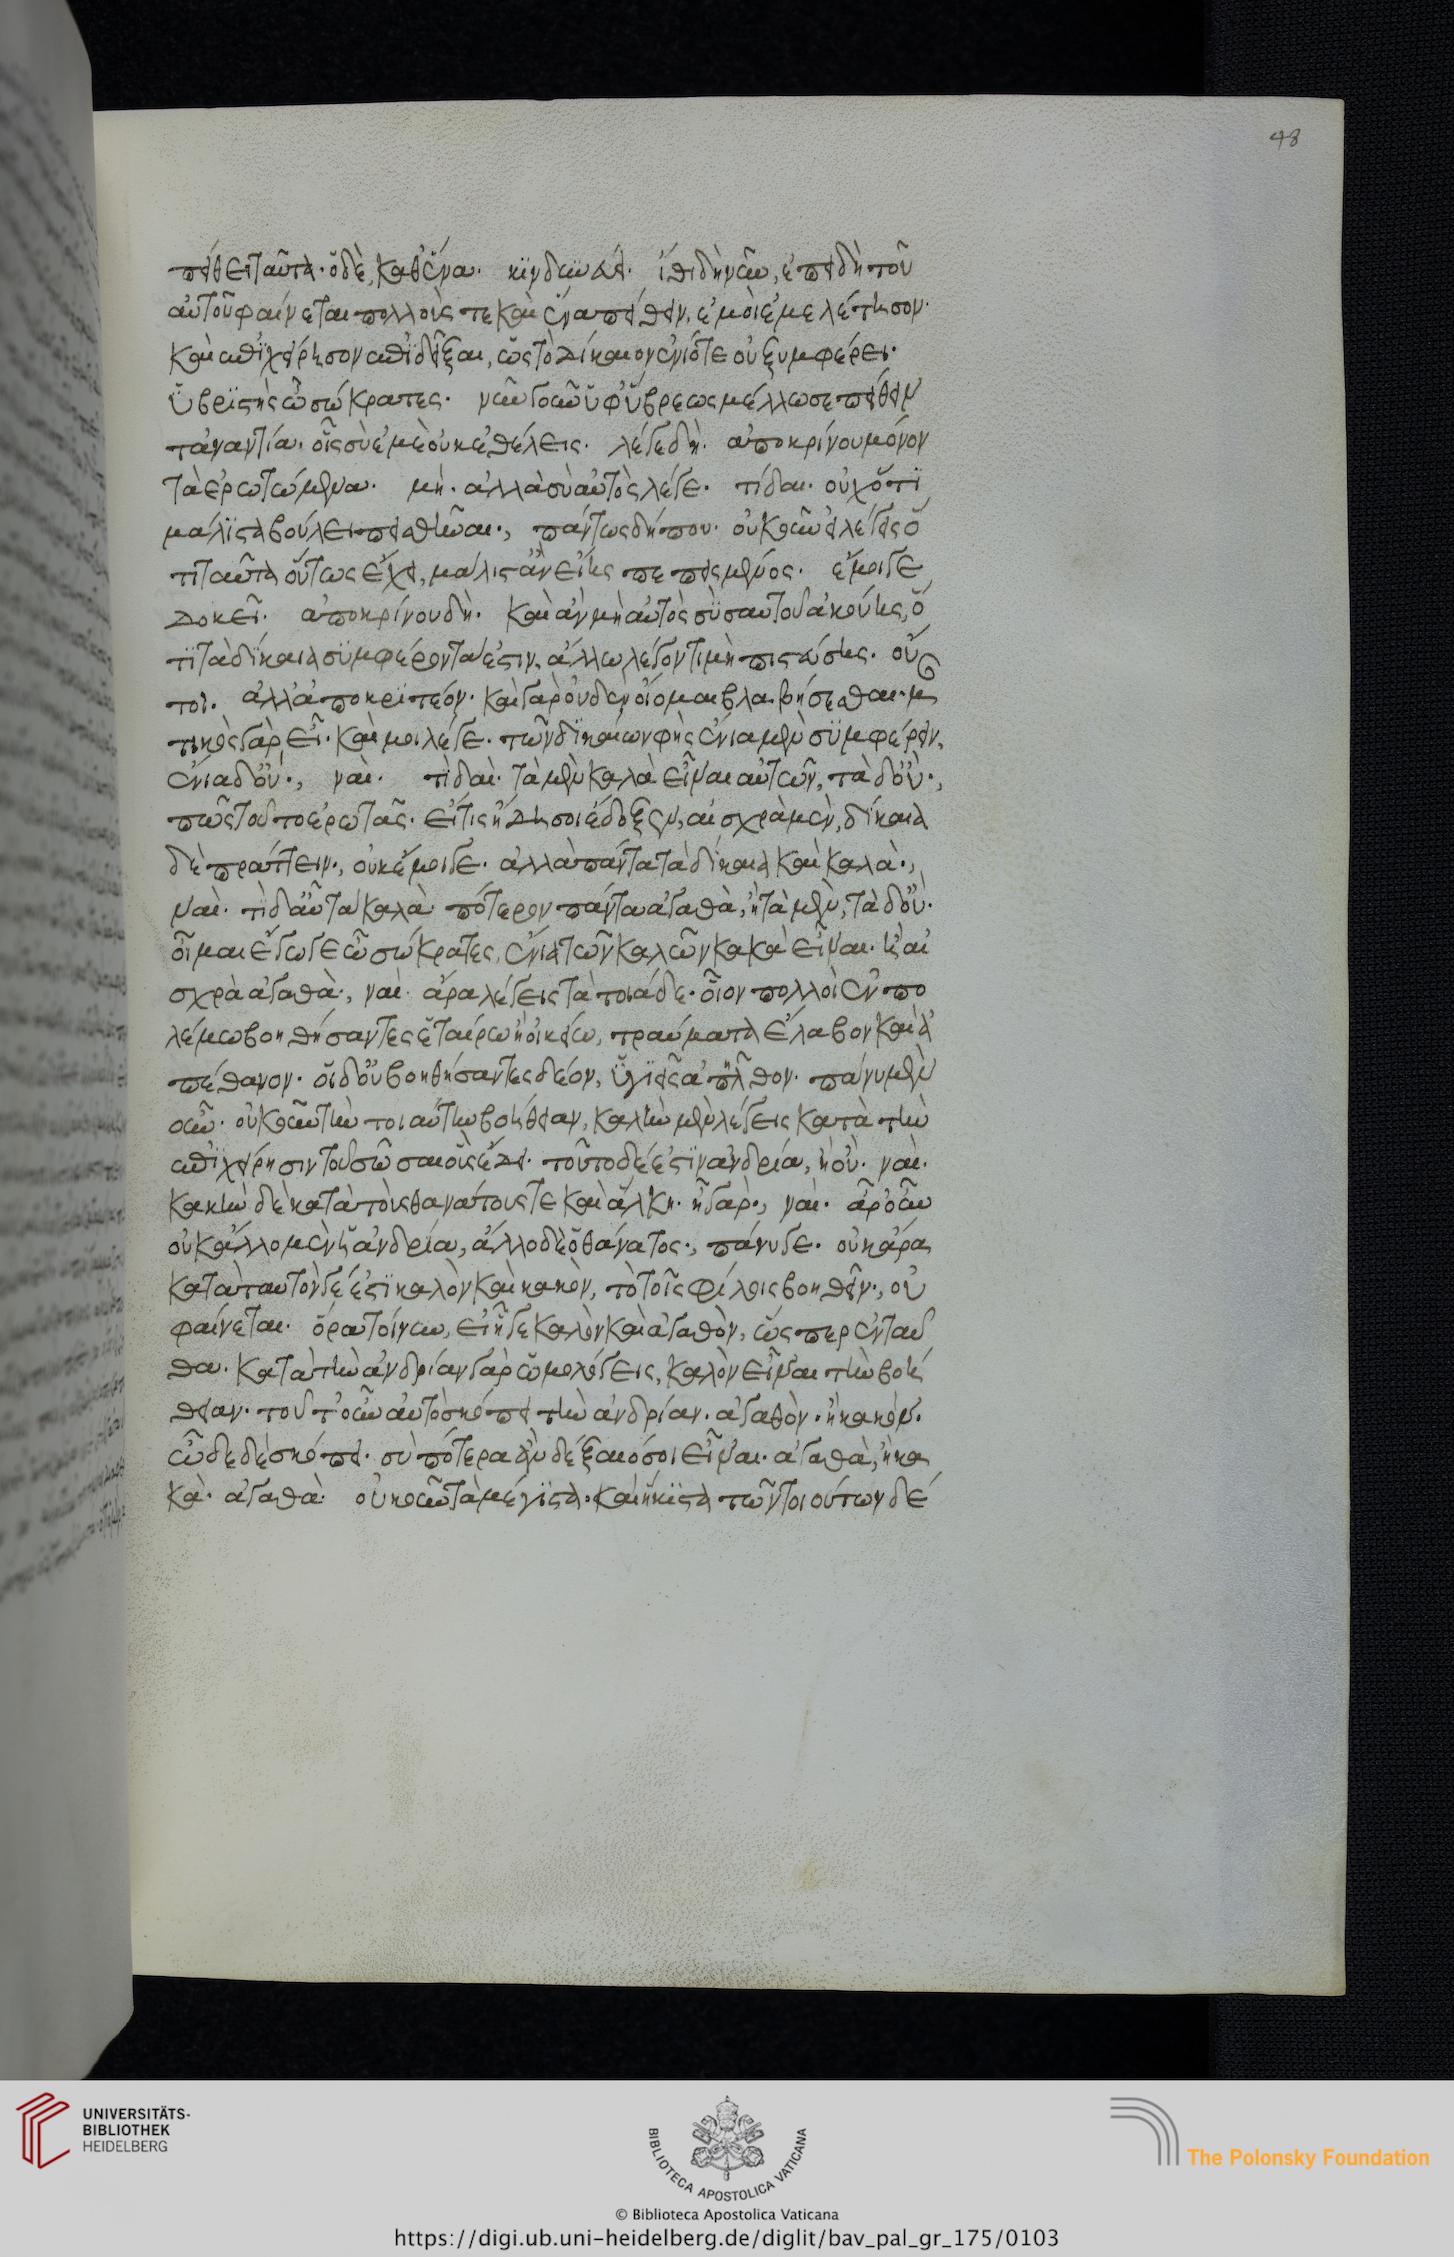 48
πείθει ταῦτα· ὁ δὲ, καθ' ἕνα· κινδυνεύει· ἴθι δὴ νῦν, ἐπειδὴ τοῦ
αὐτοῦ φαίνεται πολλούς τε καὶ ἕνα πείθειν, ἐμοὶ ἐμμελέτησον·
καὶ ἐπιχείρησον ἐπιδεῖξαι, ὡς τὸ δίκαιον ἐνίοτε οὐ ξυμφέρει·
ὑβριστὴς ὦ σώκρατες· νῦν γοῦν ὑφ' ὕβρεως μέλλω σε πείθειν
τἀναντία· οἷς σὺ ἐμὲ οὐκ ἐθέλεις· λέγε δή· ἀποκρίνου μόνον
τὰ ἐρωτώμενα· μή· ἀλλὰ σὺ αὐτὸς λέγε· τί δαι· οὐχ ὅτι
μάλιστα βούλει πεισθῆναι·, πάντως δήπου· οὐκοῦν εἰ λέγεις ὅ
τι ταῦτα οὕτως ἔχει, μάλιστ' ἂν εἴης πεπεισμένος· ἔμοιγε
δοκεῖ· ἀποκρίνου δή· καὶ ἂν μὴ αὐτὸς σὺ σαυτοῦ ἀκούσης, ὅ
τι τὰ δίκαια συμφέροντά ἐστιν, ἄλλω λέγοντι μὴ πιστεύσης· οὔ
τοι· ἀλλ' ἀποκριτέον· καὶ γὰρ οὐδὲν οἴομαι βλαβήσεσθαι· μα
τικὸς γὰρ εἶ· καί μοι λέγε· τῶν δικαίων φὴς ἔνια μὲν συμφέρειν,
ἔνια δ' οὔ·, ναί· τί δαί· τὰ μὲν καλὰ εἶναι αὐτῶν, τὰ δ' οὔ·,
πῶς τοῦτο ἐρωτᾶς· εἴ τις ἤδη σοι ἔδοξεν, αἰσχρὰ μὲν, δίκαια
δὲ πράττειν·, οὐκ ἔμοιγε· ἀλλὰ πάντα τὰ δίκαια καὶ καλά·,
ναί· τί δ' αὖ τὰ καλὰ πότερον πάντα ἀγαθὰ, ἢ τὰ μὲν, τὰ δ' οὔ·
οἶμαι ἔγωγε ὦ σώκρατες, ἔνια τῶν καλῶν κακὰ εἶναι· ἢ αἰ
σχρὰ ἀγαθά·, ναί· ἆρα λέγεις τὰ τοιάδε· οἷον πολλοὶ ἐν πο
λέμω βοηθήσαντες ἑταίρω ἢ οἰκείω, τραύματα ἔλαβον καὶ ἀ
πέθανον· οἱ δ' οὐ βοηθήσαντες δέον, ὑγιεῖς ἀπῆλθον· πάνυ μὲν
οὖν· οὐκοῦν τὴν τοιαύτην βοήθειαν, καλὴν μὲν λέγεις κατὰ τὴν
ἐπιχείρησιν τοῦ σῶσαι οὓς ἔδει· τοῦτο δέ ἐστιν ἀνδρία, ἢ οὔ· ναί·
κακὴν δὲ κατὰ τοὺς θανάτους τε καὶ ἕλκη· ἦ γάρ·, ναί· ἆρ' οὖν
οὐκ ἄλλο μὲν ἡ ἀνδρία, ἄλλο δὲ ὁ θάνατος·, πάνυ γε· οὐκ ἄρα
κατὰ ταυτόν γέ ἐστι καλὸν καὶ κακὸν, τὸ τοῖς φίλοις βοηθεῖν·, οὐ
φαίνεται· ὅρα τοίνυν, εἰ ἧ γε καλὸν καὶ ἀγαθὸν, ὥσπερ ἐνταῦ
θα· κατὰ τὴν ἀνδρίαν γὰρ ὡμολόγεις, καλὸν εἶναι τὴν βοή
θειαν· τοῦτ' οὖν αὐτὸ σκόπει τὴν ἀνδρίαν· ἀγαθὸν· ἢ κακόν·
ὧδε δὲ σκόπει· σὺ πότερα ἂν δέξαιό σοι εἶναι· ἀγαθὰ, ἢ κα
κά· ἀγαθά· οὐκοῦν τὰ μέγιστα· καὶ ἥκιστα τῶν τοιούτων δέ
UNIVERSITÄTS-
BIBLIOTHEK
HEIDELBERG
BIBLIOTECA APOSTOLICA VATICANA
The Polonsky Foundation
© Biblioteca Apostolica Vaticana
https://digi.ub.uni-heidelberg.de/diglit/bav_pal_gr_175/0103